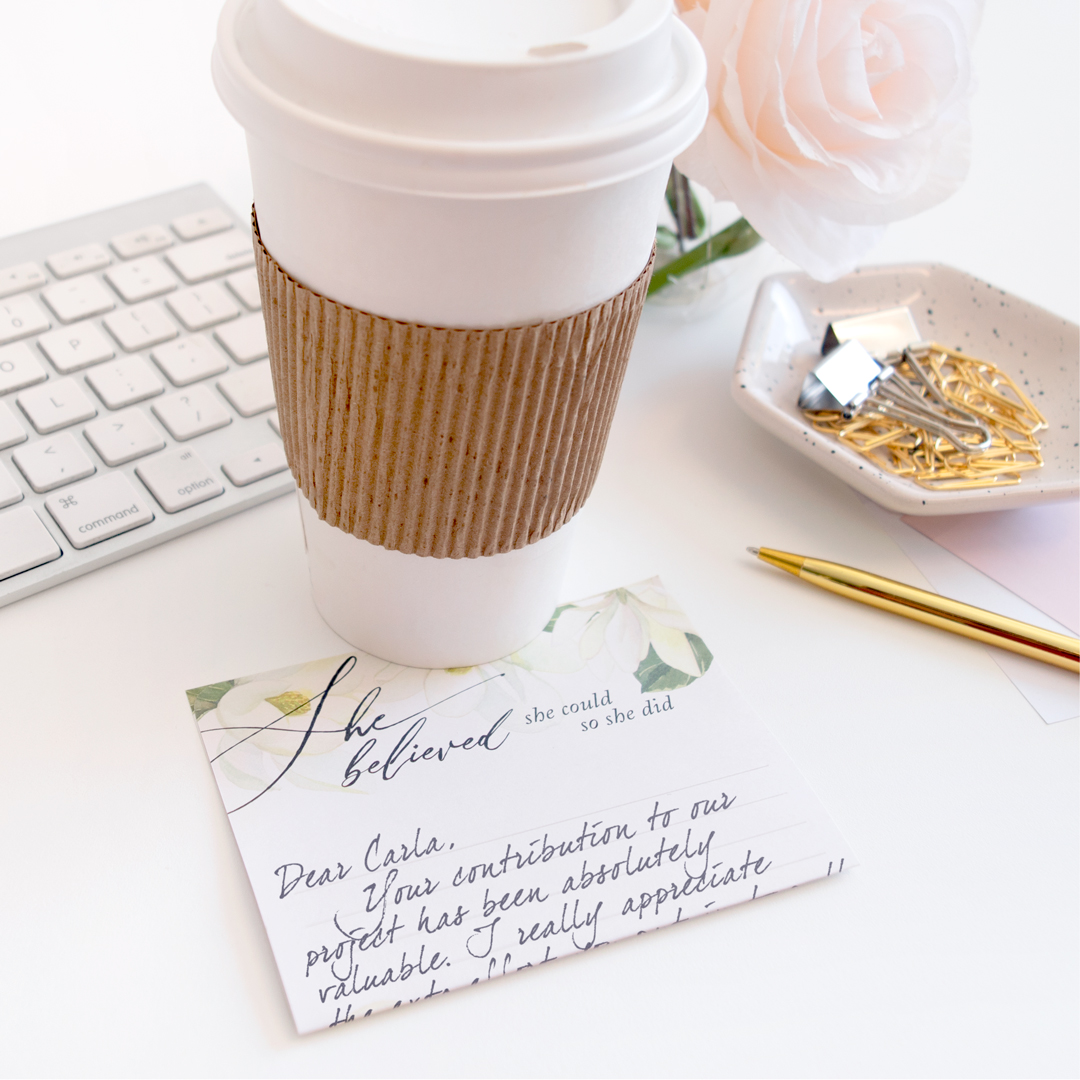 O
P
L
:
;
"
'
?
/
>
.
<
,
⌘
command
alt
option
She
believed
she could
so she did
Dear Carla,
Your contribution to our
project has been absolutely
valuable. I really appreciate
the extra effort